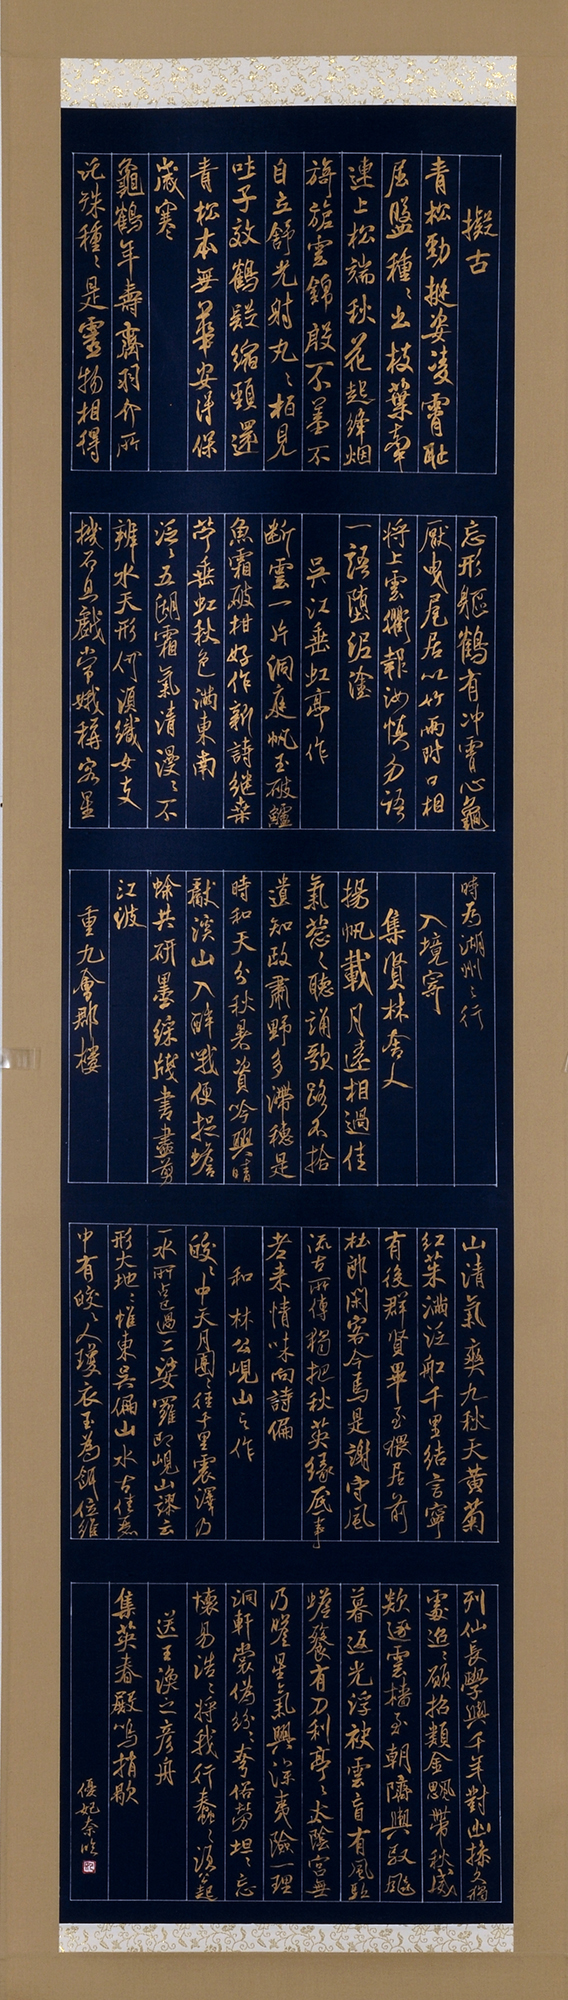 擬古
青松勁挺姿凌霄恥
屈盤種〻出枝葉牽
連上松端秋花起絳烟
旖旎雲錦殷不羞不
自立舒光射丸〻栢見
吐子效鶴疑縮頸還
青松本無華安得保
歲寒
龜鶴年壽齊羽介所
託殊種〻是靈物相得
忘形軀鶴有冲霄心龜
厭曳尾居以竹兩附口相
將上雲衢報汝慎勿語
一語墮泥塗
吳江垂虹亭作
断雲一片洞庭帆玉破鱸
魚霜破柑好作新詩継桑
苧垂虹秋色滿東南
泛〻五湖霜氣清漫〻不
辨水天形何須織女支
機石且戲常娥稱客星
時為湖州之行
入境寄
集賢林舍人
揚帆載月遠相過佳
氣葱〻聽誦歌路不拾
遺知政肅野多滯穗是
時和天分秋暑資吟興晴
獻溪山入醉哦便捉蟾
蜍共研墨綵牋書盡剪
江波
重九會郡樓
山清氣爽九秋天黃菊
紅茱滿泛船千里結言寧
有後群賢畢至猥居前
杜郎閑客今焉是謝守風
流古所傳獨把秋英緣底事
老来情味向詩偏
和林公峴山之作
皎〻中天月團〻徑千里震澤乃
一水所占已過二娑羅即峴山謬云
形大地〻惟東吳偏山水古佳麗
中有皎〻人瓊衣玉為餌位維
列仙長學與千年對幽操久獨
處迢〻願招類金飈帶秋威
欻逐雲檣至朝隮輿馭飈
暮返光浮袂雲盲有風驅
蟾餮有刀利亭〻太陰宮無
乃瞻星氣興深夷險一理
洞軒裳偽紛〻夸俗勞坦〻忘
懷易浩〻將我行蠢〻須公起
送王渙之彦舟
集英春殿鳴捎歇